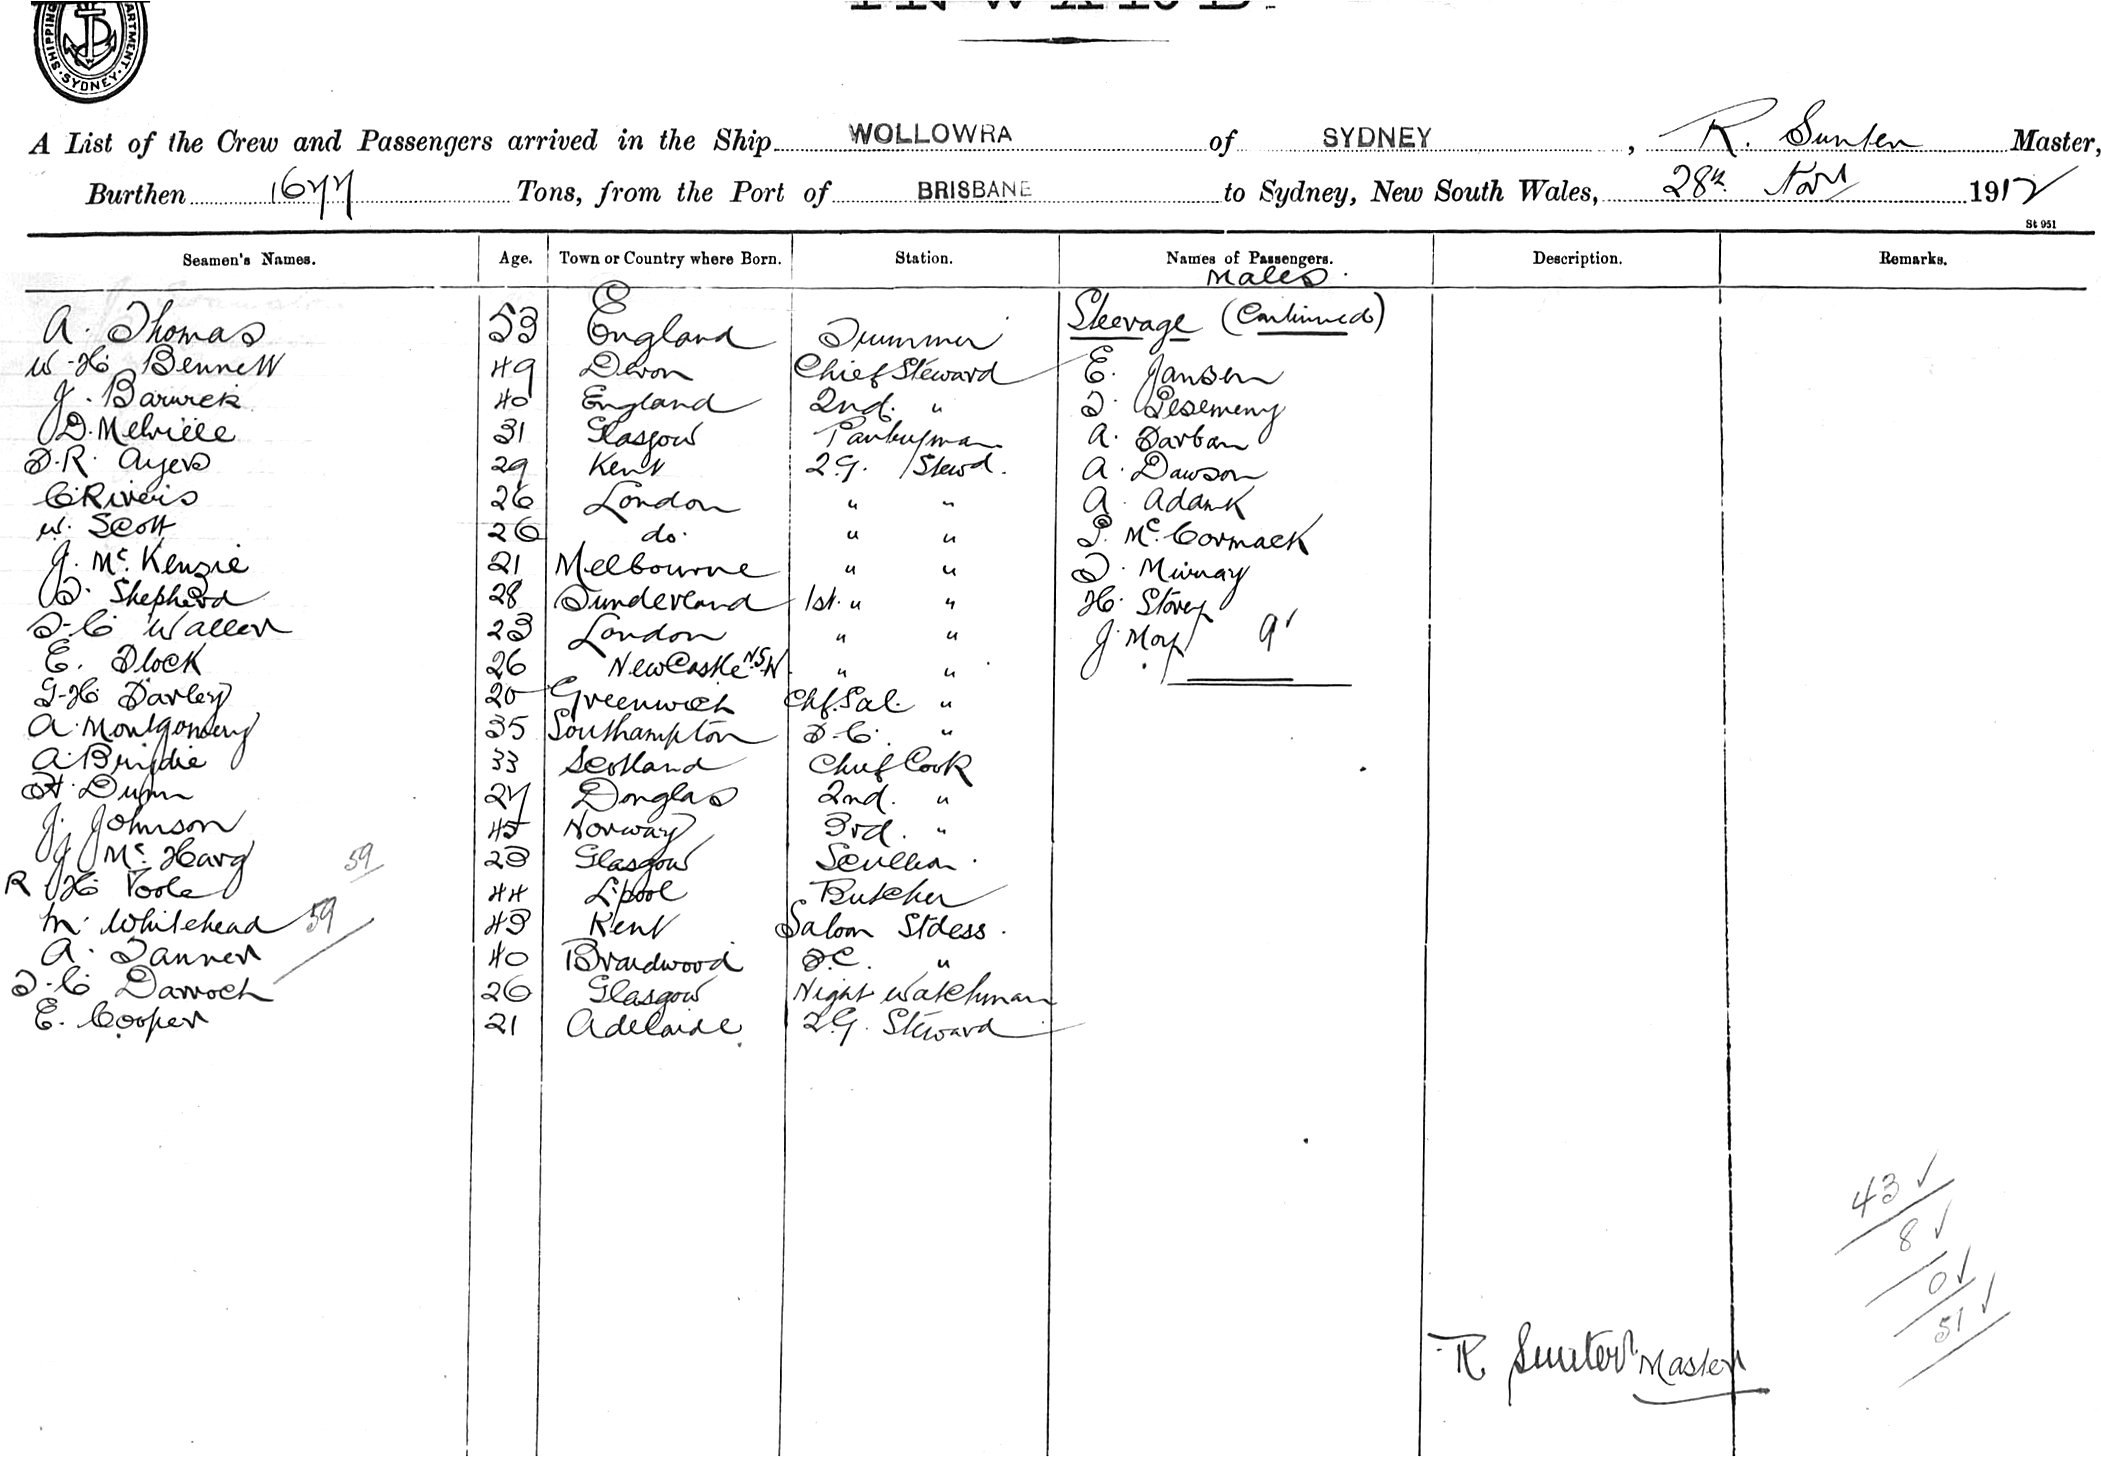 SHIPPING DEPARTMENT. SYDNEY.
INWARD.
A List of the Crew and Passengers arrived in the Ship WOLLOWRA of SYDNEY, R. Sunter Master,
Burthen 1677 Tons, from the Port of BRISBANE to Sydney, New South Wales, 28th Novr 1912
St 951
Seamen's Names. Age. Town or Country where Born. Station. Names of Passengers. Description. Remarks.
Males.
Steerage (Continued)
A. Thomas 53 England Trimmer
W. H. Bennett 49 Devon Chief Steward E. Jansen
J. Barwick 40 England 2nd. "
D. Melville 31 Glasgow Pantryman A. Darban
D. R. Ayers 29 Kent 2.G. Stewd. A. Dawson
C. Rivers 26 London " " A. Adank
W. Scott 26 do. " " P. McCormack
J. McKenzie 21 Melbourne " " T. Murray
D. Shepherd 28 Sunderland 1st. " " H. Storey
T. C. Waller 23 London " " J. Moy 9
E. Block 26 NewCastle N.S.W. " "
G. H. Darley 20 Greenwich Chf. Sal. "
A. Montgomery 35 Southampton D. C. "
A. Brindie 33 Scotland Chief Cook
H. Dunn 27 Douglas 2nd. "
J. Johnson 45 Norway 3rd. "
J. McHarg 23 Glasgow Scullion. 59
R H. Poole 44 L'pool Butcher
M. Whitehead 59 43 Kent Saloon Stdess.
A. Tanner 40 Braidwood S.C. "
T. C. Darroch 26 Glasgow Night Watchman
E. Cooper 21 Adelaide 2.G. Steward
43 ✓
8 ✓
0 ✓
51 ✓
R Sunter Master